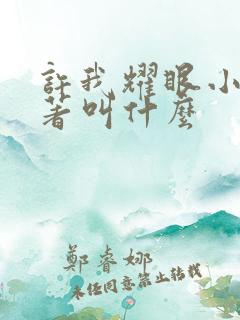 許我耀眼小
著叫什麼
鄭睿娜
未经同意禁止转载